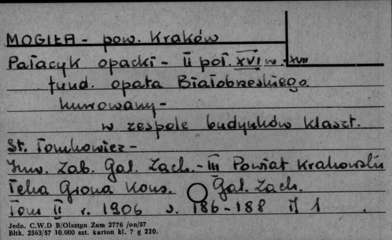 MOGIŁA - pow. Kraków
Pałacyk opacki - II poł. XVI w. XVII
fund. opata Białobrzeskiego
murowany -
w zespole budynków klaszt.
St. Tomkowicz -
Inw. Zab. Gal. Zach. - III Powiat Krakowski
Teka Grona Kons. Gal. Zach.
Tom II r. 1906 s. 186-188 il 1
Jedn. C.W.D B/Olsztyn Zam 2776 /on/57
Błk. 2563/57 10.000 szt. karton kl. 7 g 220.